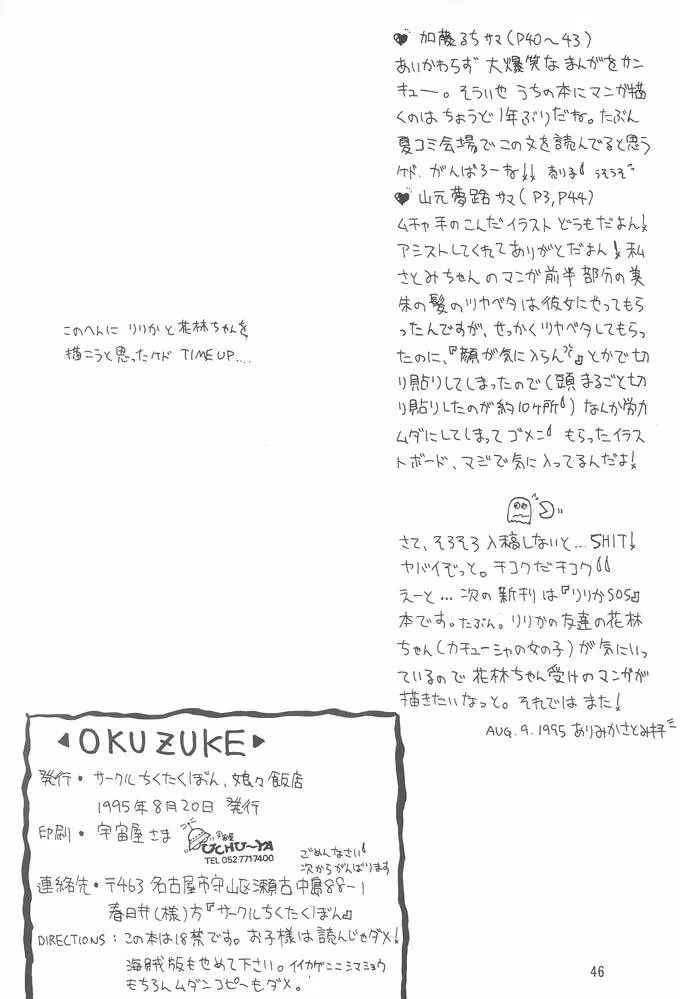 ♥ 加藤るちサマ(P40～43)
あいかわらず 大爆笑な まんがをサン
キュー。そういや うちの本にマンガ描
くのは ちょうど1年ぶりだね。たぶん
夏コミ会場で この文を読んでると思う
ケド、がんばろーね!! 売り子 うそうそ
♥ 山元夢路サマ(P3,P44)
ムチャ手のこんだイラスト どうもだよん!
アシストしてくれてありがとだよん! 私
さとみちゃんのマンガ前半部分の美
朱の髪のツヤベタは彼女にやってもら
ったんですが、せっかくツヤベタしてもらっ
たのに、『顔が気に入らん』とかで切
り貼りしてしまったので(頭まるごと切
り貼りしたのが約10ヶ所)なんか労力
ムダにしてしまってゴメン! もらったイラス
トボード、マジで気に入ってるんだよ!
さて、そろそろ入稿しないと…SHIT!
ヤバイぞっと。チコクだチコク!!
えーと…次の新刊は『りりかSOS』
本です。たぶん。りりかの友達の花林
ちゃん(カチューシャの女の子)が気にいっ
ているので花林ちゃん受けのマンガが
描きたいなっと。それでは また!
AUG.9.1995 ありみかさとみ拝
このへんに りりかと花林ちゃんを
描こうと思ったケド TIME UP....
◀OKUZUKE▶
発行・サークルちくたくぼん、娘々飯店
1995年8月20日 発行
印刷・宇宙屋さま
宇宙屋
UCHU～YA
TEL 052-771-7400
ごめんなさい!
次からがんばります
連絡先・〒463 名古屋市守山区瀬古中島88-1
春日井(様)方『サークルちくたくぼん』
DIRECTIONS：この本は18禁です。お子様は読んじゃダメ!
海賊版もやめて下さい。イイカゲンニシマショウ
もちろんムダンコピーもダメ。
46